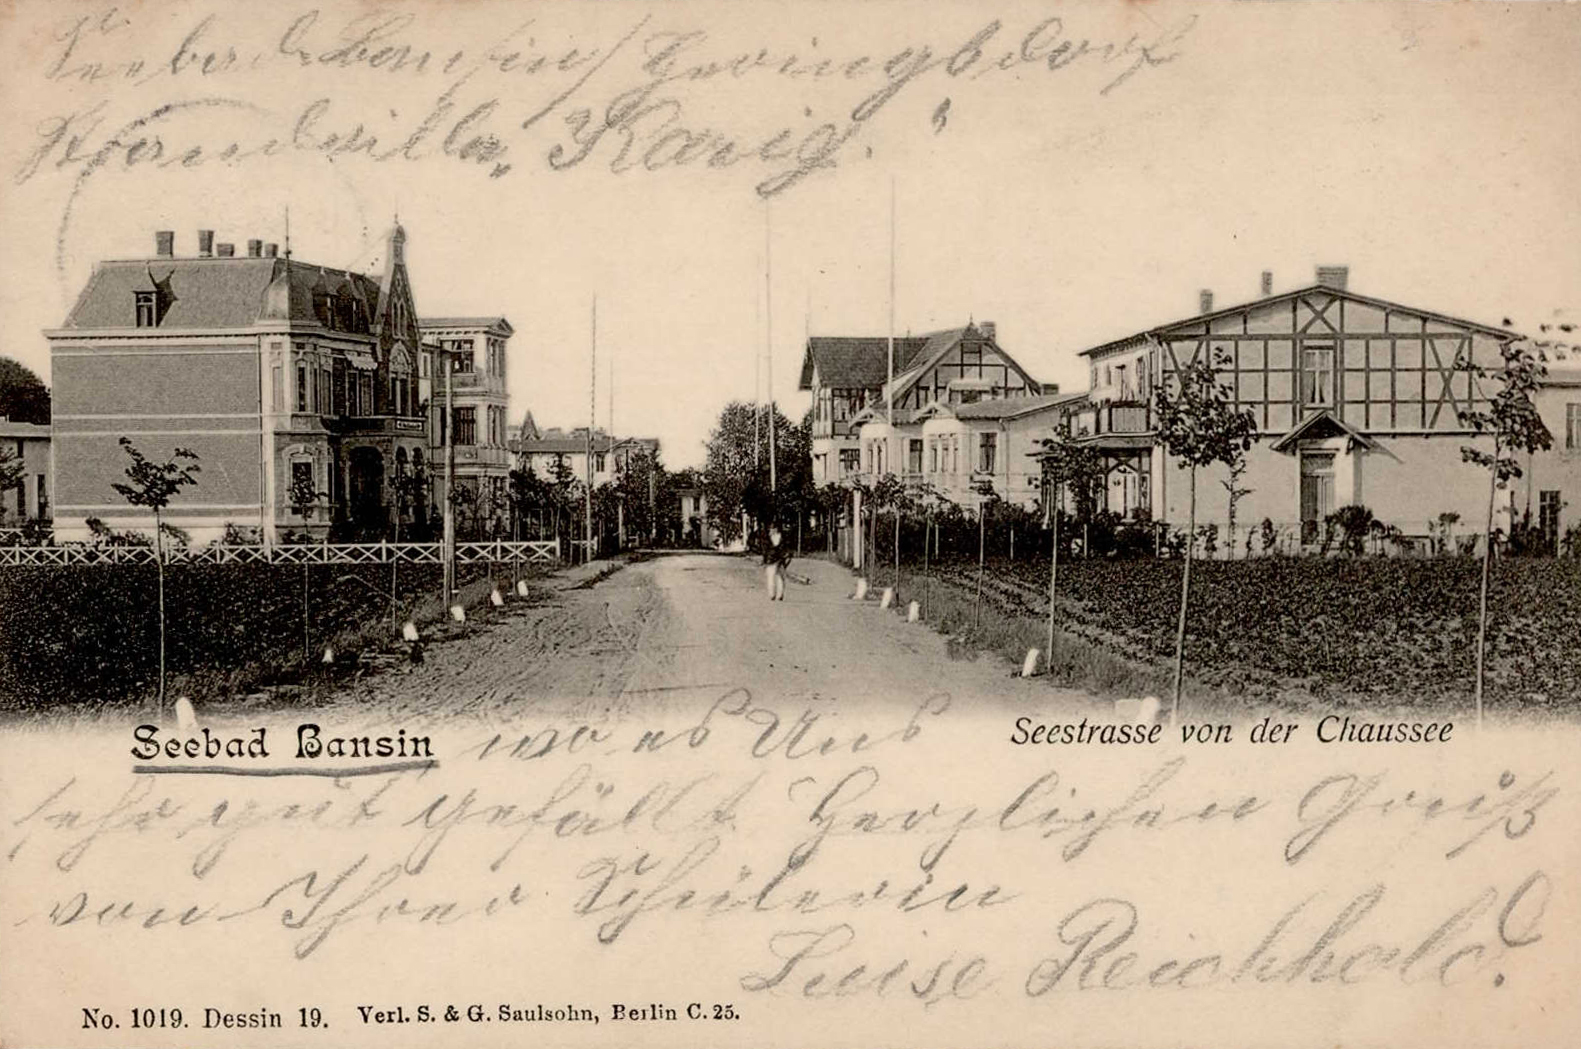 Seebad Bansin/Heringsdorf
Strandvilla "Kavig."
Seebad Bansin wo es Uns
Seestrasse von der Chaussee
sehr gut gefällt Herzlichen Gruß
von Ihrer Schülerin
Luise Reichhold.
No. 1019. Dessin 19. Verl. S. & G. Saulsohn, Berlin C. 25.